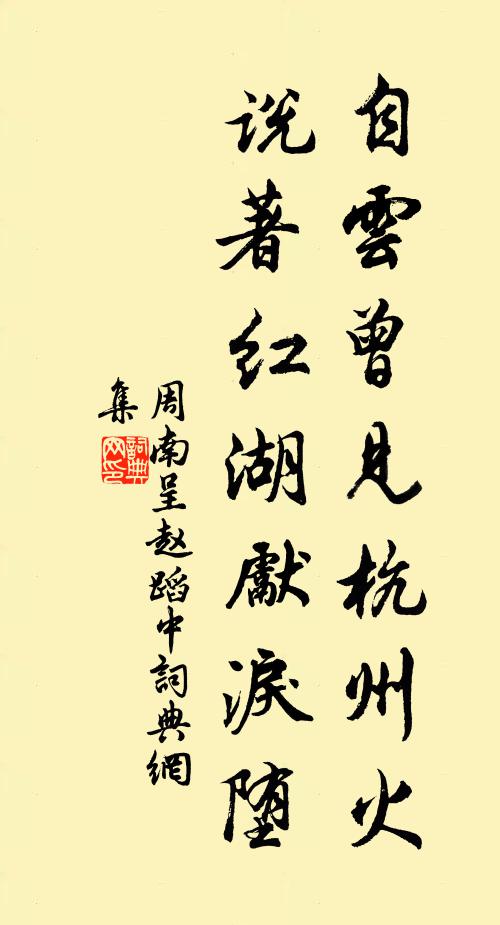 自雲曾見杭州火
説著紅湖獻淚墮
周南呈赵蹈中詞典網
集
詞典
网印